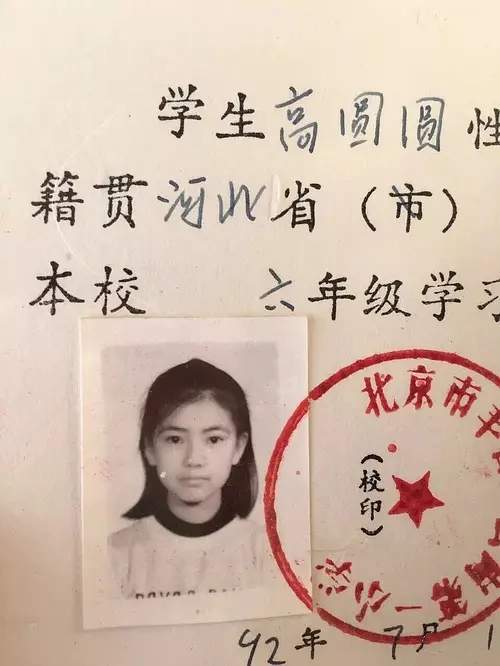 学生高圆圆性
籍贯河北省（市）
本校 六年级学习
北京市丰
第一小
（校印）
92年 7月 1